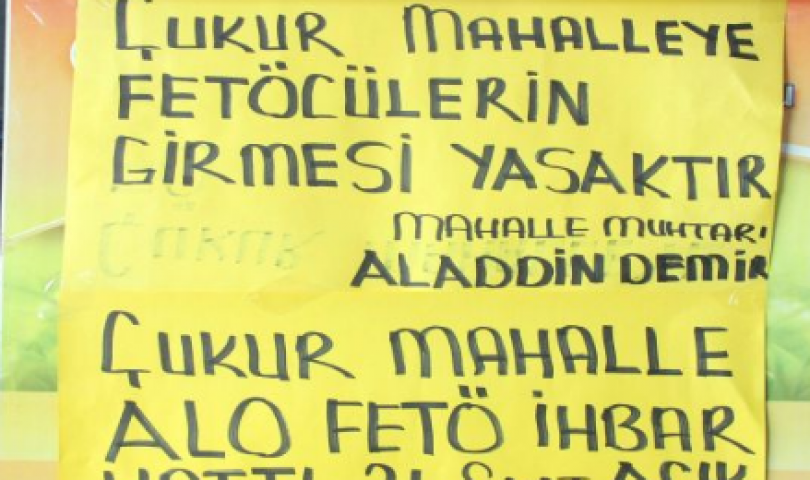 ÇUKUR MAHALLEYE
FETÖCÜLERİN
GİRMESİ YASAKTIR
MAHALLE MUHTARI
ALADDİN DEMİR
ÇUKUR MAHALLE
ALO FETÖ İHBAR
HATTI AÇIK